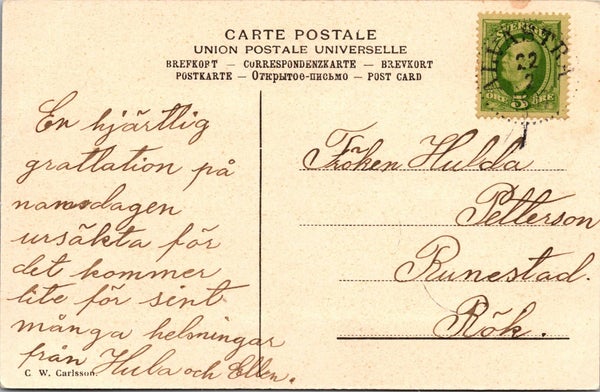 CARTE POSTALE
UNION POSTALE UNIVERSELLE
BREFKORT — CORRESPONDENZKARTE — BREVKORT
POSTKARTE — Открытое-письмо — POST CARD
SVERIGE
22
ÖRE 5 ÖRE
En hjärtlig
grattation på
namsdagen
ursäkta för
det kommer
lite för sint
många helsningar
från Hulda och Ellen.
Fröken Hulda
Petterson
Runestad.
Rök.
C. W. Carlsson.